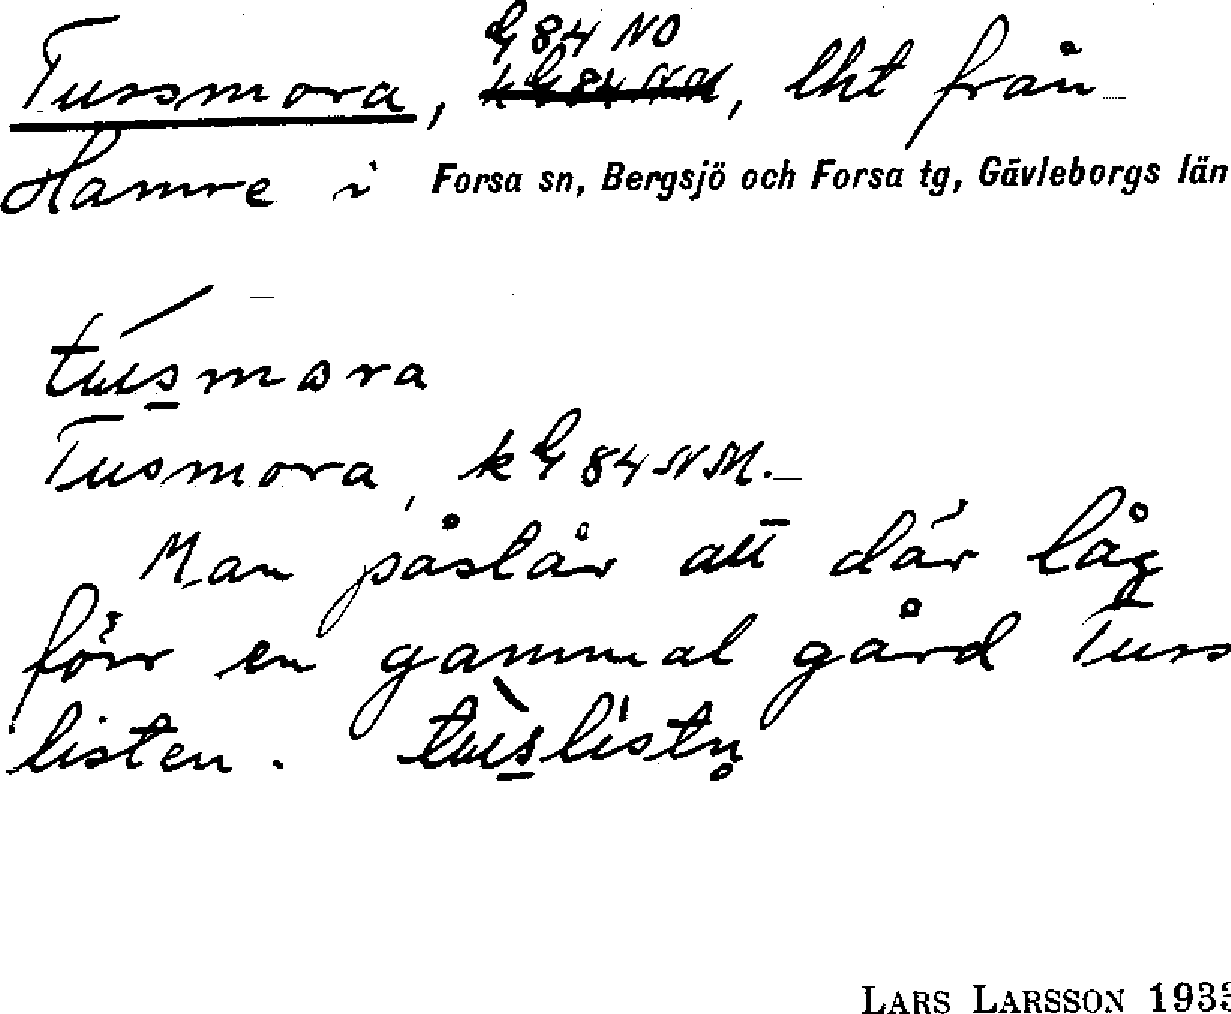 G 84 NO
Tussmora, k G 84 NM, lht från
Hamre i Forsa sn, Bergsjö och Forsa tg, Gävleborgs län
tusmora
Tusmora, k G 84 NM.
Man påstår att där låg
förr en gammal gård Tuss
listen. tuslistn̥
LARS LARSSON 193